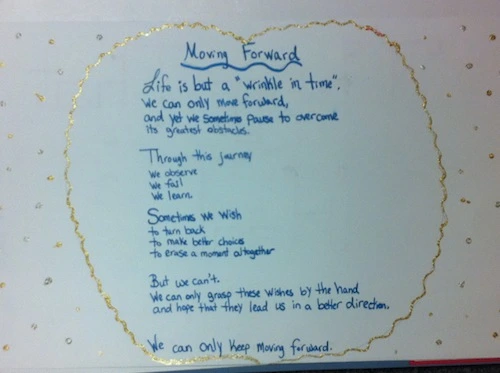 Moving Forward
Life is but a "wrinkle in time".
We can only move forward,
and yet we sometimes pause to overcome
its greatest obstacles.
Through this journey
we observe
we fail
we learn.
Sometimes we wish
to turn back
to make better choices
to erase a moment altogether
But we can't.
We can only grasp these wishes by the hand
and hope that they lead us in a better direction.
We can only keep moving forward.